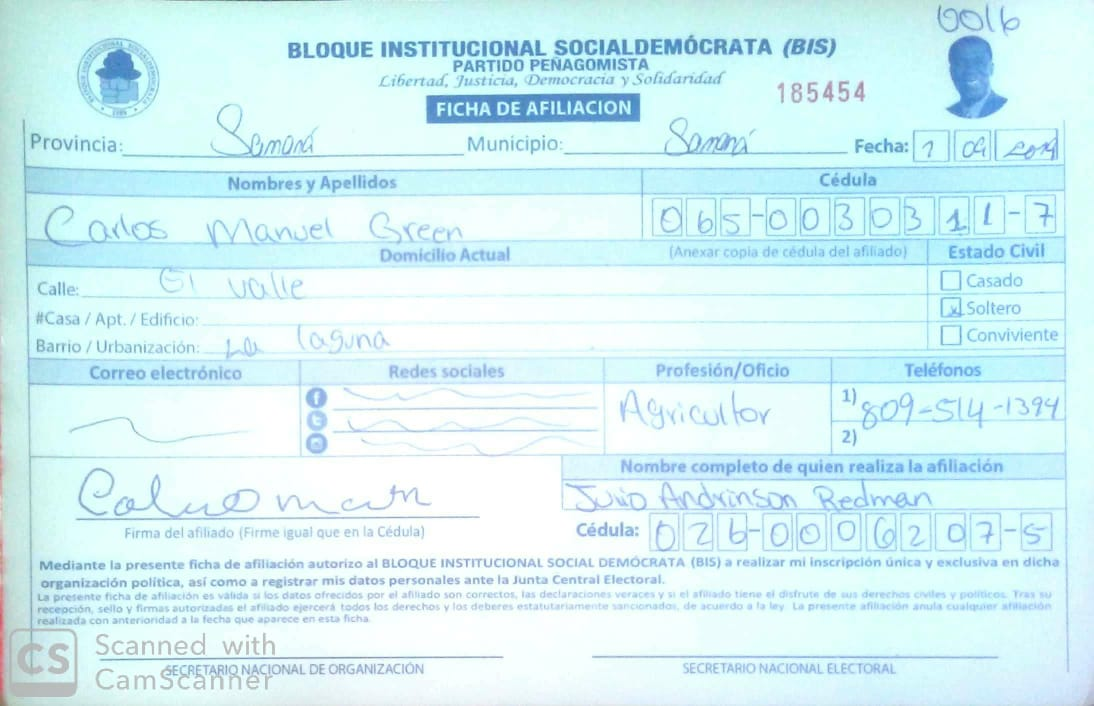 0016
BLOQUE INSTITUCIONAL SOCIALDEMÓCRATA (BIS)
PARTIDO PEÑAGOMISTA
Libertad, Justicia, Democracia y Solidaridad
185454
FICHA DE AFILIACION
Provincia: Samaná Municipio: Samaná Fecha: 1 09 2019
Nombres y Apellidos Cédula
Carlos Manuel Green 065-0030311-7
Domicilio Actual (Anexar copia de cédula del afiliado) Estado Civil
Calle: El valle Casado
#Casa / Apt. / Edificio: x Soltero
Barrio / Urbanización: La laguna Conviviente
Correo electrónico Redes sociales Profesión/Oficio Teléfonos
Agricultor 1) 809-514-1394
2)
Nombre completo de quien realiza la afiliación
Julio Andrinson Redman
Firma del afiliado (Firme igual que en la Cédula) Cédula: 026-0006207-5
Mediante la presente ficha de afiliación autorizo al BLOQUE INSTITUCIONAL SOCIAL DEMÓCRATA (BIS) a realizar mi inscripción única y exclusiva en dicha
organización política, así como a registrar mis datos personales ante la Junta Central Electoral.
La presente ficha de afiliación es válida si los datos ofrecidos por el afiliado son correctos, las declaraciones veraces y si el afiliado tiene el disfrute de sus derechos civiles y políticos. Tras su
recepción, sello y firmas autorizadas el afiliado ejercerá todos los derechos y los deberes estatutariamente sancionados, de acuerdo a la ley. La presente afiliación anula cualquier afiliación
realizada con anterioridad a la fecha que aparece en esta ficha.
CS Scanned with
CamScanner
SECRETARIO NACIONAL DE ORGANIZACIÓN SECRETARIO NACIONAL ELECTORAL